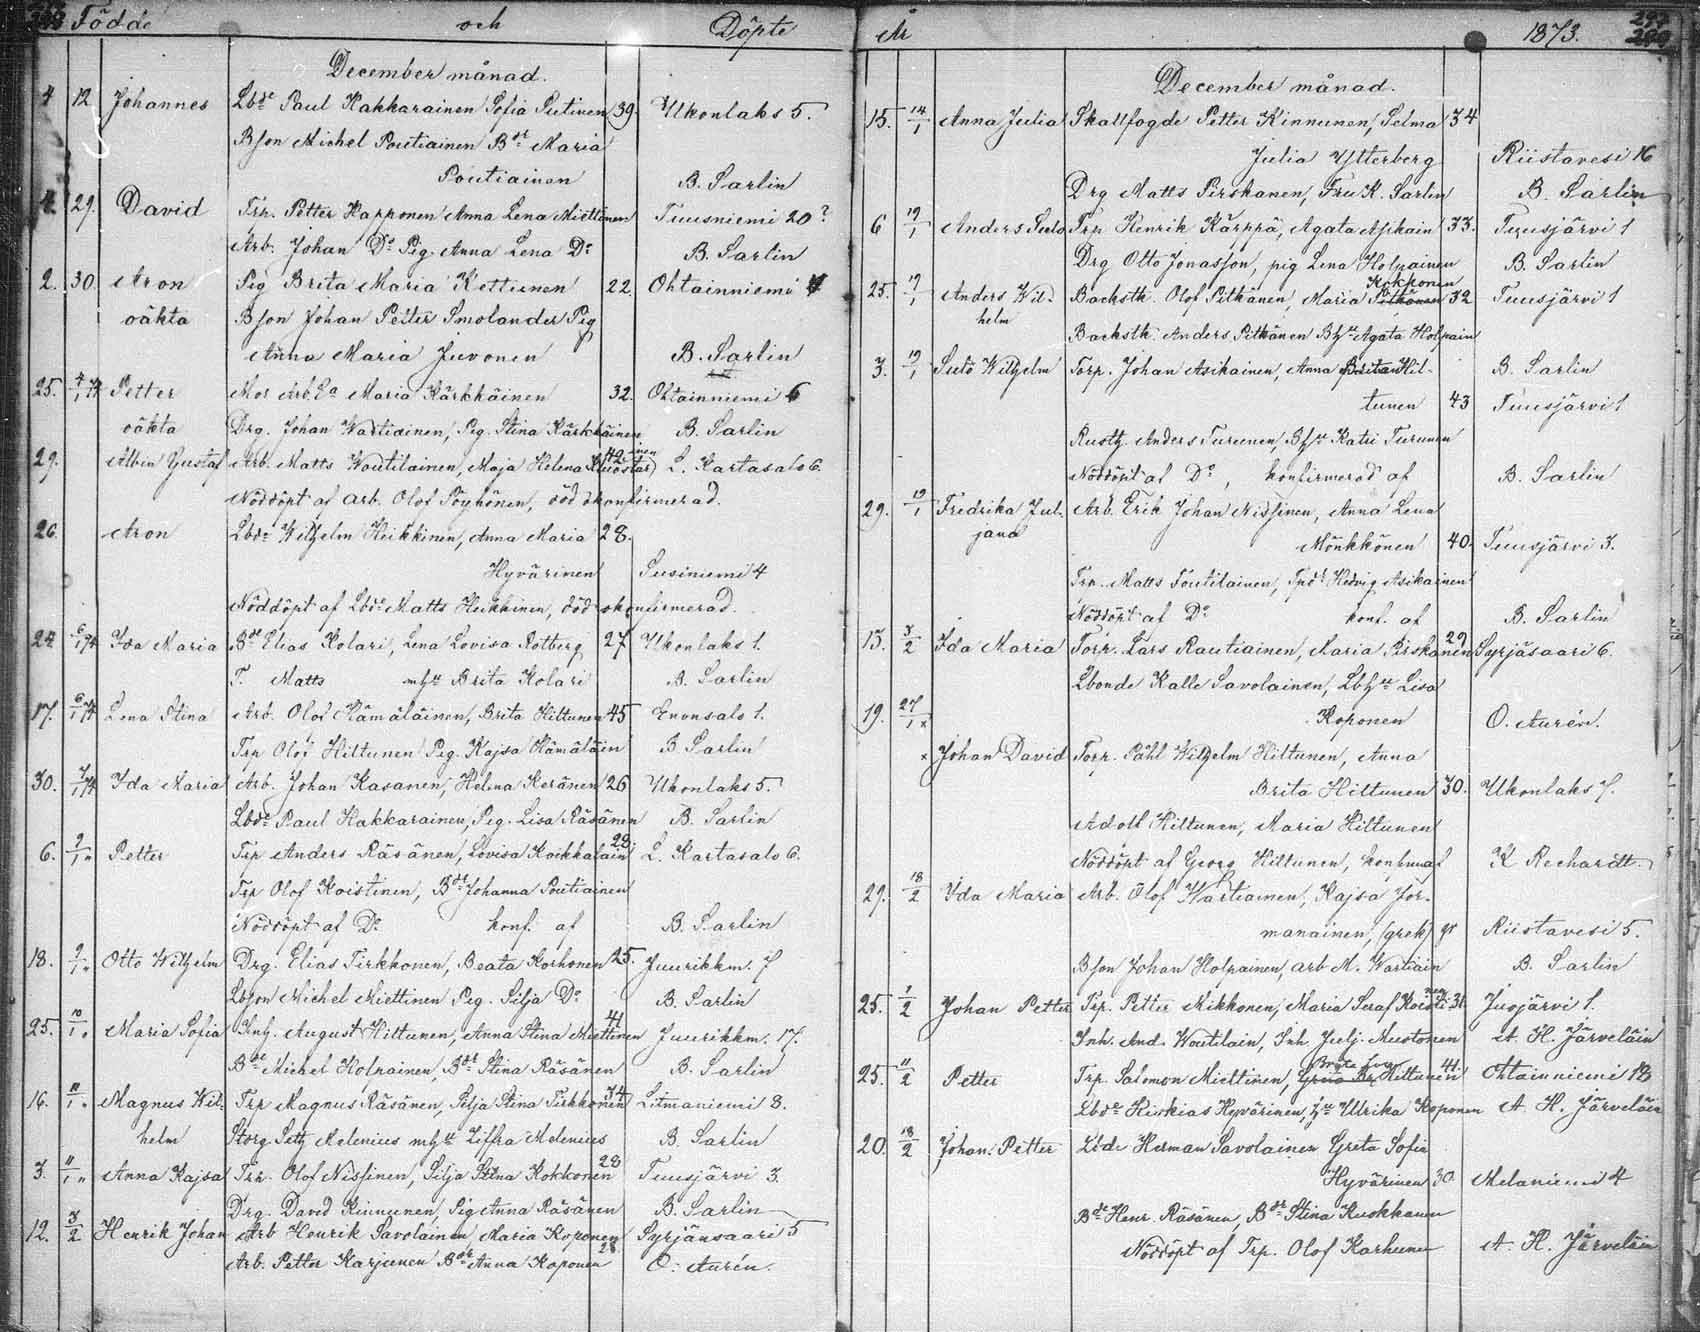 Födde och Döpte
December månad.
4 12 Johannes Lbde Paul Hakkarainen, Sofia Putinen 39. Ukonlaks 5.
Bson Michel Poutiainen Bdr Maria
Poutiainen B. Sarlin
4. 29. David Trp. Petter Happonen Anna Lena Miettinen Tuusniemi 20?
Arb. Johan Do Pig. Anna Lena Do B. Sarlin
2. 30. Aron Pig Brita Maria Kettunen 22. Ohtainniemi 4
oäkta Bson Johan Petter Smolander Pig
Anna Maria Juvonen B. Sarlin
25. Petter Maria Kärkkäinen 32. Ohtainniemi 6
oäkta Drg. Johan Wartiainen, Pig. Stina Kärkkäinen B. Sarlin
29. Albin Gustaf Arb. Matts Woutilainen, Maja Helena 42 L. Kartasalo 6.
Nöddöpt af arb. Olof Pöyhönen, död okonfirmerad.
26. Aron Lbde Wilhelm Heikkinen, Anna Maria 28.
Hyvärinen Susiniemi 4
Nöddöpt af Lbde Matts Heikkinen, död okonfirmerad.
24 6/1 74 Ida Maria Bde Elias Kolari, Lena Lovisa Rotberg 27 Ukonlaks 1.
T. Matts mhu Brita Kolari B. Sarlin
17. 6/1 74 Lena Stina Arb. Olof Hämäläinen, Brita Hiltunen 45 Enonsalo 1.
Trp Olof Hiltunen Pig. Kajsa Hämäläin B. Sarlin
30. 7/1 74 Ida Maria Arb. Johan Kasanen, Helena Keränen 26 Ukonlaks 5.
Lbde Paul Hakkarainen, Pig. Lisa Räsänen B. Sarlin
6. 9/1 " Petter Trp Anders Räsänen, Lovisa Koikkalain 28 L. Kartasalo 6.
Trp Olof Koistinen, Bdr Johanna Poutiainen
Nöddöpt af Do konf. af B. Sarlin
18. 9/1 " Otto Wilhelm Drg. Elias Tirkkonen, Beata Korhonen 25. Juurikkm. 7
Lbson Michel Miettinen Pig. Silja Do B. Sarlin
25. 10/1 " Maria Sofia Inh. August Hiltunen, Anna Stina Miettinen 41 Juurikkm. 17.
Bde Michel Holpainen, Bdr Stina Räsänen B. Sarlin
16. 11/1 " Magnus Wil- Trp Magnus Räsänen, Silja Stina Tirkkonen 34 Litmaniemi 8.
helm Storg. Melenius mhu Ziffra Melenius B. Sarlin
3. 11/1 " Anna Kajsa Trp. Olof Nissinen, Silja Stina Kokkonen 28 Tuusjärvi 3.
Drg. David Kinnunen, Pig Anna Räsänen B. Sarlin
12. 3/2 Henrik Johan Arb Henrik Savolainen, Maria Koponen 28 Syrjänsaari 5
Arb. Petter Karjunen Bdr Anna Koponen O. Aurén.
År 1873.
December månad.
15. 14/1 Anna Julia Skallfogde Petter Kinnunen, Selma 34
Julia Ytterberg Riistavesi 16
Drg Matts Pirskanen, Fru K. Sarlin B. Sarlin
6 19/1 Anders Trp Henrik Kärppä, Agata Asikain 33. Tuusjärvi 1
Drg Otto Jonasson, pig Lena Holpainen B. Sarlin
Kokkonen
25. 19/1 Anders Wil- Backstk. Olof Pitkänen, Maria Pitkänen 32 Tuusjärvi 1
helm
Backstk. Anders Pitkänen Bhu Agata Holpain
3. 19/1 Wilhelm Torp. Johan Asikainen, Anna Brita Hil- B. Sarlin
tunen 43 Tuusjärvi 1
Rusth. Anders Turunen, Bhu Katri Turunen
Nöddöpt af Do, konfirmerad af B. Sarlin
29. 19/1 Fredrika Jul- Arb. Erik Johan Nissinen, Anna Lena
jana Mönkkönen 40. Tuusjärvi 3.
Trp. Matts Toutilainen, Hedvig Asikainen
Nöddöpt af Do konf. af B. Sarlin
13. 3/2 Ida Maria Torp. Lars Rautiainen, Maria Pirskanen 29 Syrjäsaari 6.
Lbonde Kalle Savolainen, Lbhu Lisa
19. 27/1 x Koponen O. Aurén.
x Johan David Torp. Påhl Wilhelm Hiltunen, Anna
Brita Hiltunen 30. Ukonlaks 7.
Adolf Hiltunen, Maria Hiltunen
Nöddöpt af Georg Hiltunen, konf. af K Rechardt
29. 18/2 Ida Maria Arb. Olof Wartiainen, Kajsa Jor-
manainen, (grek) Riistavesi 5.
Bson Johan Holpainen, arb M. Wartiain B. Sarlin
25. 1/2 Johan Petter Trp. Petter Mikkonen, Maria Seraf. Koistinen 31 Jusjärvi 1.
Inh. And. Woutilain, Inh Julj. Mustonen A. H. Järveläin
25. 11/2 Petter Trp. Salomon Miettinen, Hiltunen 44. Ohtainniemi 18
Lbde Hiskias Hyvärinen, hu Ulrika Koponen A. H. Järveläin
20. 18/2 Johan Petter Lbde Herman Savolainen Greta Sofia
Hyvärinen 30 Melaniemi 4
Bde Henr. Räsänen, Bdr Stina Kuokkanen
Nöddöpt af Trp. Olof Karhunen A. H. Järveläin